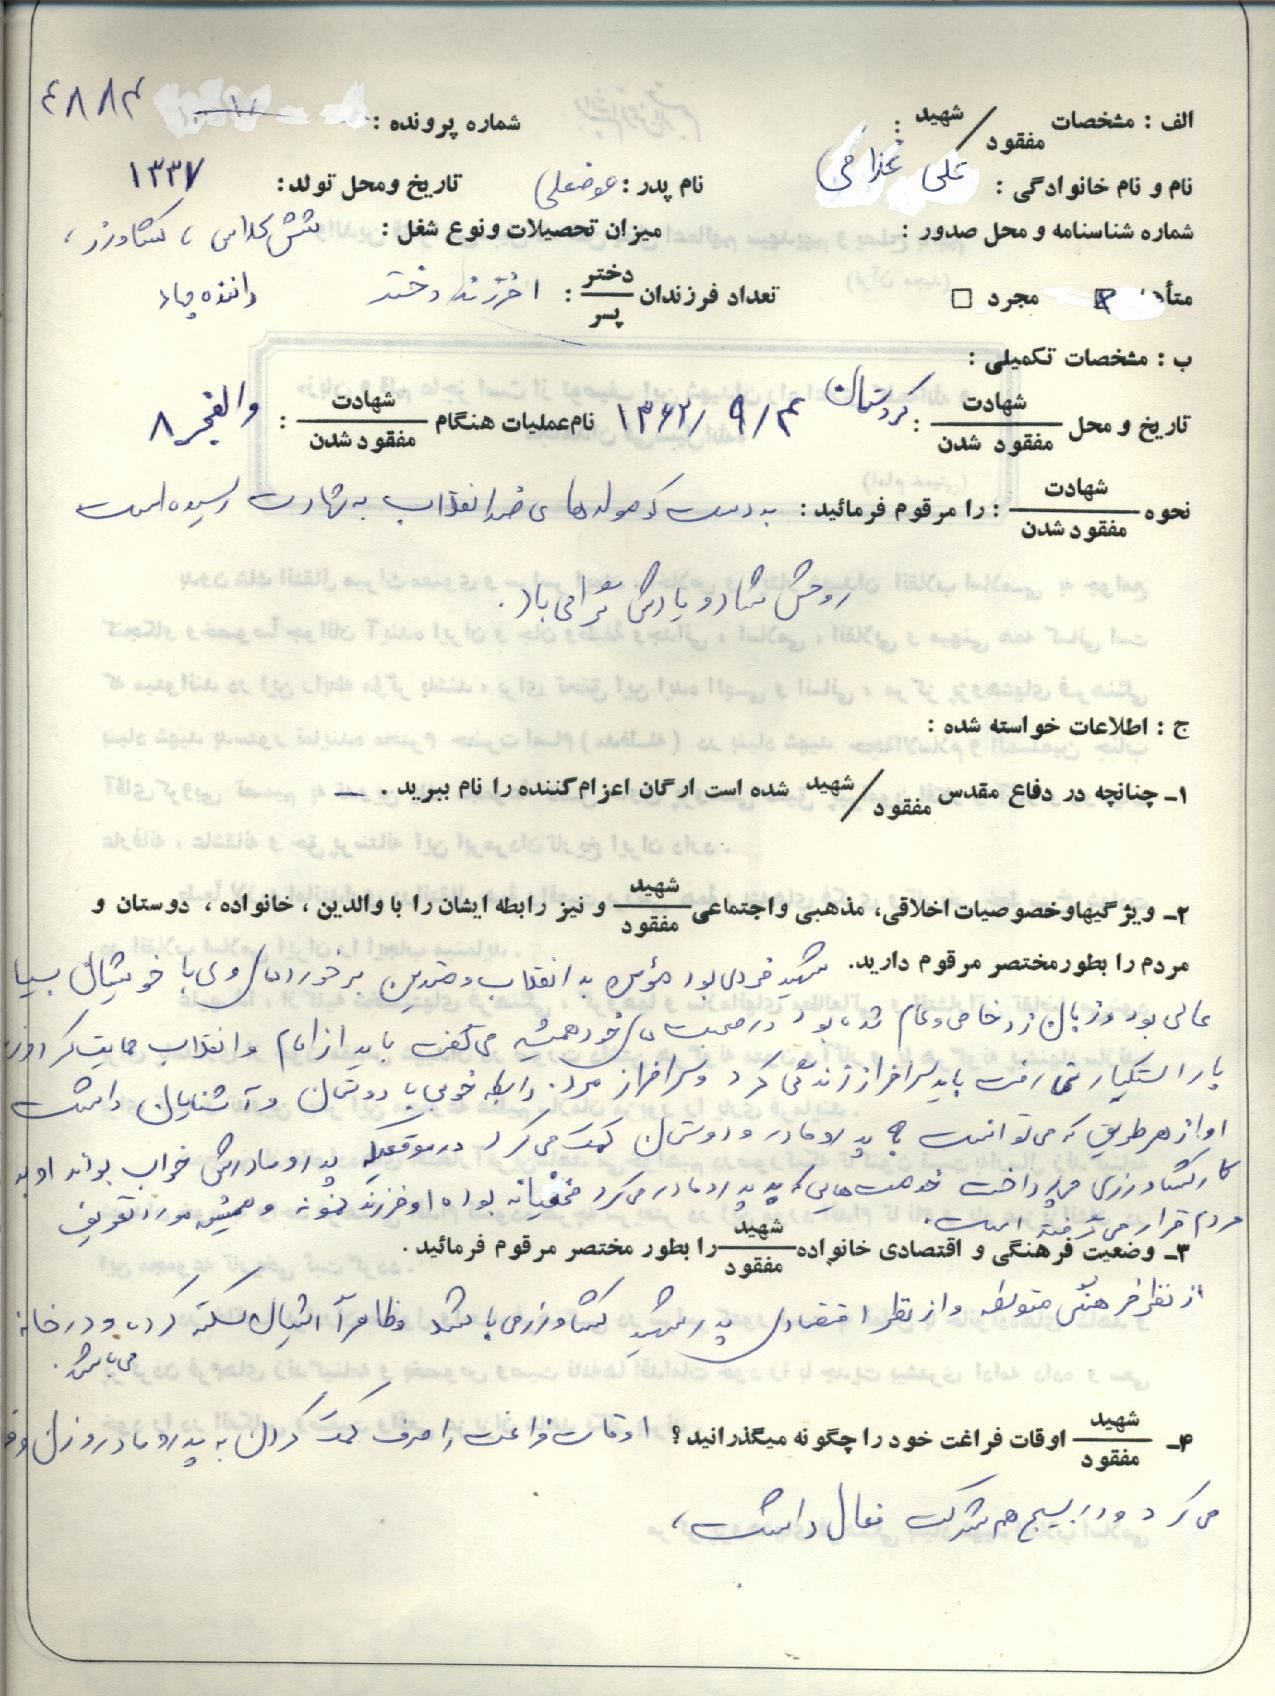 الف : مشخصات شهید / مفقود : شماره پرونده : ٤٨٨٤
نام و نام خانوادگی : علی نام پدر : عوضعلی تاریخ ومحل تولد : ۱۳۳۷
شماره شناسنامه و محل صدور : میزان تحصیلات ونوع شغل : شش کلاس ، کشاورز ،
متأ مجرد تعداد فرزندان دختر / پسر : ۱ فرزند دختر راننده
ب : مشخصات تکمیلی :
تاریخ و محل شهادت / مفقود شدن : کردستان ۱۳۶۲/۹/۴ نام عملیات هنگام شهادت / مفقود شدن : والفجر ۸
نحوه شهادت / مفقود شدن : را مرقوم فرمائید : به دست کومولهای ضد انقلاب به شهادت رسیده است
روحش شاد و یادش گرامی باد .
ج : اطلاعات خواسته شده :
۱ـ چنانچه در دفاع مقدس شهید / مفقود شده است ارگان اعزام کننده را نام ببرید . ــ
۲ـ ویژگیهاوخصوصیات اخلاقی، مذهبی واجتماعی شهید / مفقود و نیز رابطه ایشان را با والدین ، خانواده ، دوستان و
مردم را بطورمختصر مرقوم دارید. شهید فردی بود مؤمن به انقلاب و برخوردهای وی با خویشان بسیا
عالی بود و زبان زد خاص و عام شده بود در صحبت های خود همیشه می گفت باید از امام و انقلاب حمایت کرد
بار استکبار نمی رفت باید سرافراز زندگی کرد و سرافراز مرد. رابطه خوبی با دوستان و آشنایان داشت
او از هر طریق که می توانست به پدر و مادر و دوستان کمک می کرد در موقعیکه پدر و مادرش خواب بودند او به
کار کشاورزی می پرداخت خدمت هایی که به پدر و مادر می کرد مخفیانه بوده او فرزند نمونه و همیشه مورد تعریف
مردم قرار می گرفته است.
۳ـ وضعیت فرهنگی و اقتصادی خانواده شهید / مفقود را بطور مختصر مرقوم فرمائید .
از نظر فرهنگی متوسطه و از نظر اقتصادی پدر شهید کشاورز می باشد و ظاهرآ ایشان سکته کرده و در خانه
می باشد .
۴ـ شهید / مفقود اوقات فراغت خود را چگونه میگذرانید ؟ اوقات فراغت را صرف کمک کردن به پدر و مادر و زن و
می کرد و در بسیج هم شرکت فعال داشت ،